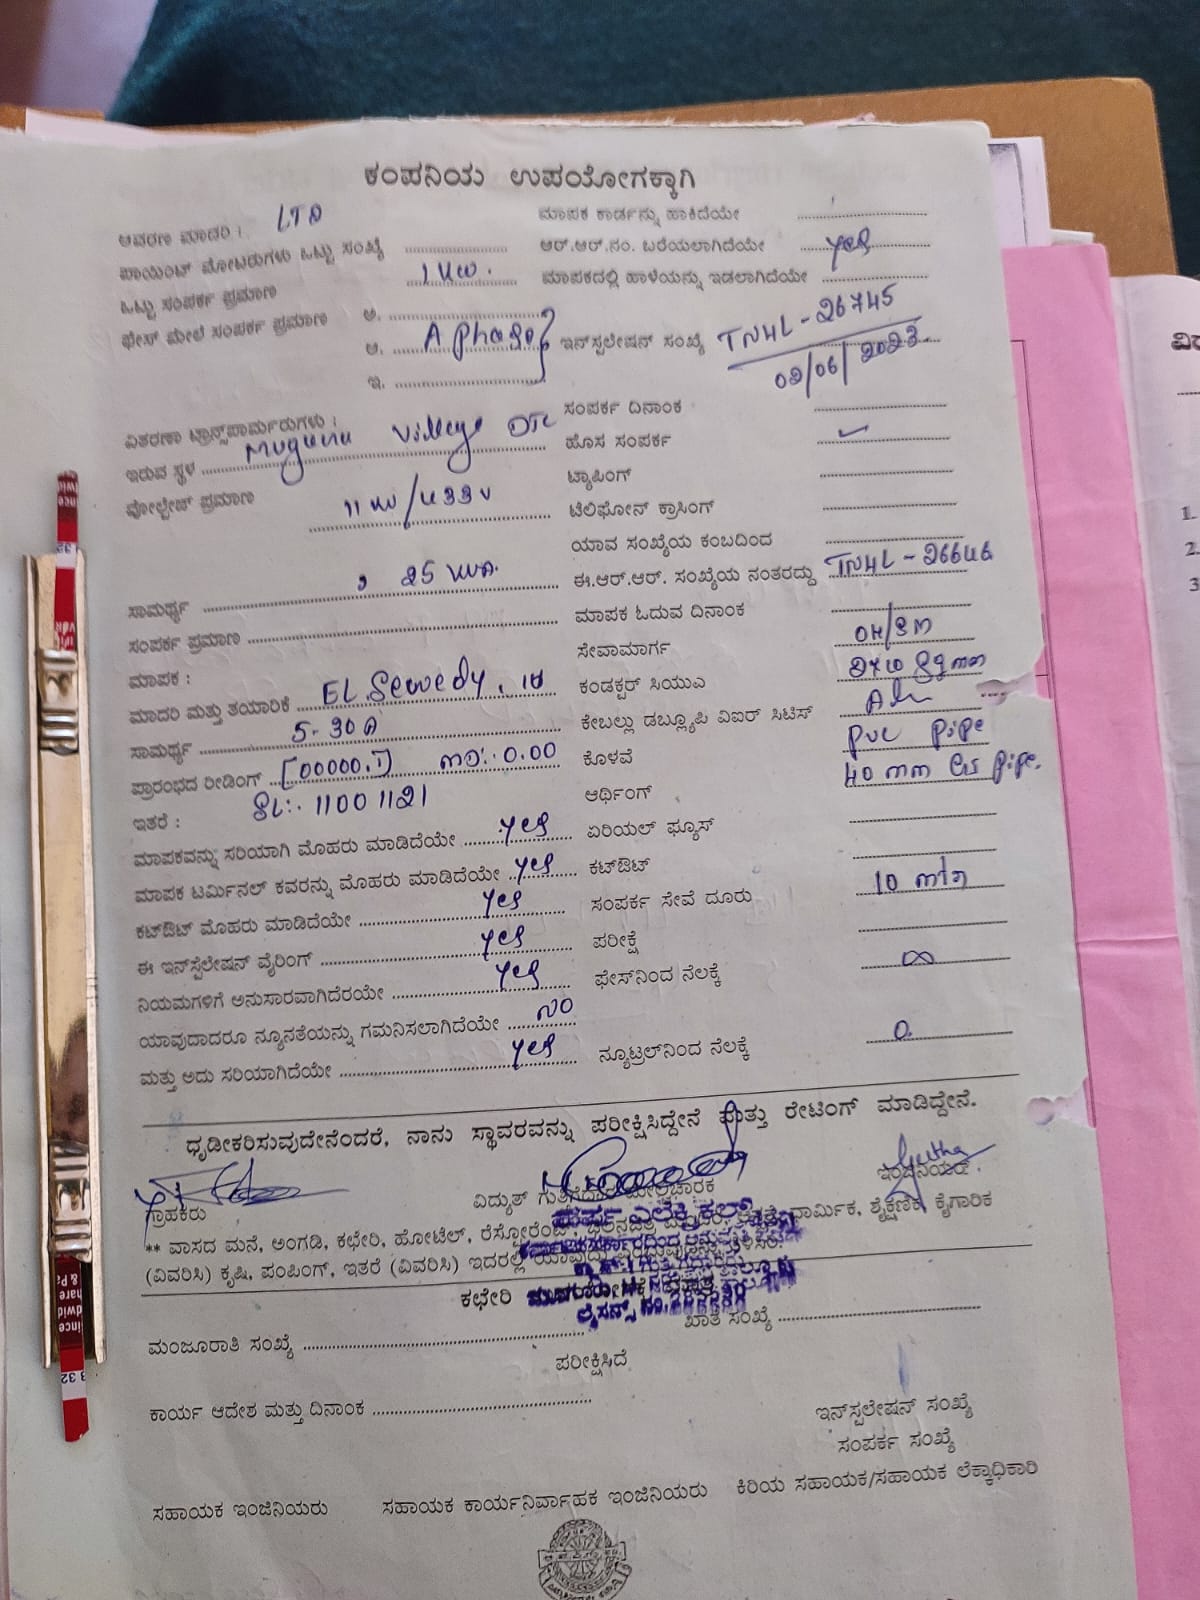 ಕಂಪನಿಯ ಉಪಯೋಗಕ್ಕಾಗಿ
ಆವರಣ ಮಾದರಿ : LTD
ಪಾಯಿಂಟ್ ಮೋಟರುಗಳು ಒಟ್ಟು ಸಂಖ್ಯೆ
ಒಟ್ಟು ಸಂಪರ್ಕ ಪ್ರಮಾಣ 1 KW.
ಫೇಸ್ ಮೇಲೆ ಸಂಪರ್ಕ ಪ್ರಮಾಣ ಅ.
ಆ. A Phase
ಇ.
ವಿತರಣಾ ಟ್ರಾನ್ಸ್‌ಫಾರ್ಮರುಗಳು :
ಇರುವ ಸ್ಥಳ Village
ವೋಲ್ಟೇಜ್ ಪ್ರಮಾಣ 11 KV/433V
ಸಾಮರ್ಥ್ಯ 25 KVA.
ಸಂಪರ್ಕ ಪ್ರಮಾಣ
ಮಾಪಕ :
ಮಾದರಿ ಮತ್ತು ತಯಾರಿಕೆ EL.Sewedy.
ಸಾಮರ್ಥ್ಯ 5-30A
ಪ್ರಾರಂಭದ ರೀಡಿಂಗ್ [00000.1] 0.00
ಇತರೆ : SL:. 11001121
ಮಾಪಕವನ್ನು ಸರಿಯಾಗಿ ಮೊಹರು ಮಾಡಿದೆಯೇ yes
ಮಾಪಕ ಟರ್ಮಿನಲ್ ಕವರನ್ನು ಮೊಹರು ಮಾಡಿದೆಯೇ yes
ಕಟ್‌ಔಟ್ ಮೊಹರು ಮಾಡಿದೆಯೇ yes
ಈ ಇನ್‌ಸ್ಟಲೇಷನ್ ವೈರಿಂಗ್ yes
ನಿಯಮಗಳಿಗೆ ಅನುಸಾರವಾಗಿದೆರಯೇ yes
ಯಾವುದಾದರೂ ನ್ಯೂನತೆಯನ್ನು ಗಮನಿಸಲಾಗಿದೆಯೇ NO
ಮತ್ತು ಅದು ಸರಿಯಾಗಿದೆಯೇ yes
ಮಾಪಕ ಕಾರ್ಡನ್ನು ಹಾಕಿದೆಯೇ
ಆರ್.ಆರ್.ನಂ. ಬರೆಯಲಾಗಿದೆಯೇ yes
ಮಾಪಕದಲ್ಲಿ ಹಾಳೆಯನ್ನು ಇಡಲಾಗಿದೆಯೇ
ಇನ್‌ಸ್ಪಲೇಷನ್ ಸಂಖ್ಯೆ TN4L-26745
02/06/2023
ಸಂಪರ್ಕ ದಿನಾಂಕ
ಹೊಸ ಸಂಪರ್ಕ
ಟ್ಯಾಪಿಂಗ್
ಟೆಲಿಫೋನ್ ಕ್ರಾಸಿಂಗ್
ಯಾವ ಸಂಖ್ಯೆಯ ಕಂಬದಿಂದ
ಈ.ಆರ್.ಆರ್. ಸಂಖ್ಯೆಯ ನಂತರದ್ದು TN4L-26646
ಮಾಪಕ ಓದುವ ದಿನಾಂಕ
ಸೇವಾಮಾರ್ಗ OH/SM
ಕಂಡಕ್ಟರ್ ಸಿಯುಎ
ಕೇಬಲ್ಲು ಡಬ್ಲ್ಯೂಪಿ ವಿಐರ್ ಸಿಟಿಸ್
ಕೊಳವೆ PVC Pipe
ಆರ್ಥಿಂಗ್ 40 mm pipe.
ಏರಿಯಲ್ ಫ್ಯೂಸ್
ಕಟ್‌ಔಟ್
ಸಂಪರ್ಕ ಸೇವೆ ದೂರು 10 mts
ಪರೀಕ್ಷೆ
ಫೇಸ್‌ನಿಂದ ನೆಲಕ್ಕೆ ∞
ನ್ಯೂಟ್ರಲ್‌ನಿಂದ ನೆಲಕ್ಕೆ 0.
ಧೃಡೀಕರಿಸುವುದೇನೆಂದರೆ, ನಾನು ಸ್ಥಾವರವನ್ನು ಪರೀಕ್ಷಿಸಿದ್ದೇನೆ ಮತ್ತು ರೇಟಿಂಗ್ ಮಾಡಿದ್ದೇನೆ.
ಗ್ರಾಹಕರು ವಿದ್ಯುತ್ ಇಂಜಿನಿಯರ್
** ವಾಸದ ಮನೆ, ಅಂಗಡಿ, ಕಛೇರಿ, ಹೋಟೆಲ್, ಧಾರ್ಮಿಕ, ಶೈಕ್ಷಣಿಕ, ಕೈಗಾರಿಕ
(ವಿವರಿಸಿ) ಕೃಷಿ, ಪಂಪಿಂಗ್, ಇತರೆ (ವಿವರಿಸಿ) ಇದರಲ್ಲಿ
ಕಛೇರಿ
ಮಂಜೂರಾತಿ ಸಂಖ್ಯೆ ಖಾತೆ ಸಂಖ್ಯೆ
ಪರೀಕ್ಷಿಸಿದೆ
ಕಾರ್ಯ ಆದೇಶ ಮತ್ತು ದಿನಾಂಕ
ಇನ್‌ಸ್ಪಲೇಷನ್ ಸಂಖ್ಯೆ
ಸಂಪರ್ಕ ಸಂಖ್ಯೆ
ಸಹಾಯಕ ಇಂಜಿನಿಯರು ಸಹಾಯಕ ಕಾರ್ಯನಿರ್ವಾಹಕ ಇಂಜಿನಿಯರು ಕಿರಿಯ ಸಹಾಯಕ/ಸಹಾಯಕ ಲೆಕ್ಕಾಧಿಕಾರಿ